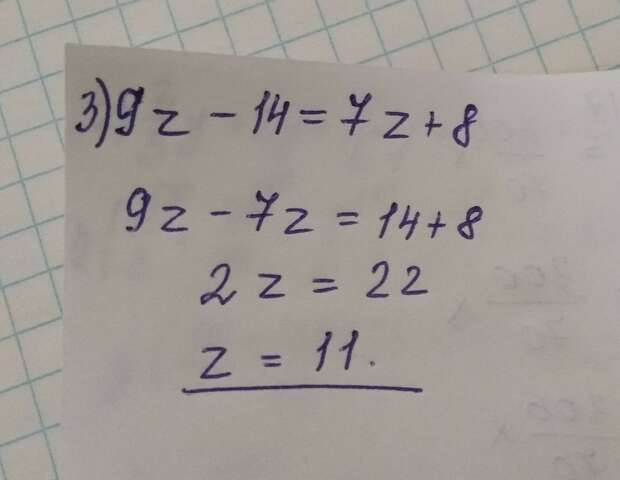 3) 9z - 14 = 7z + 8
9z - 7z = 14 + 8
2z = 22
z = 11.